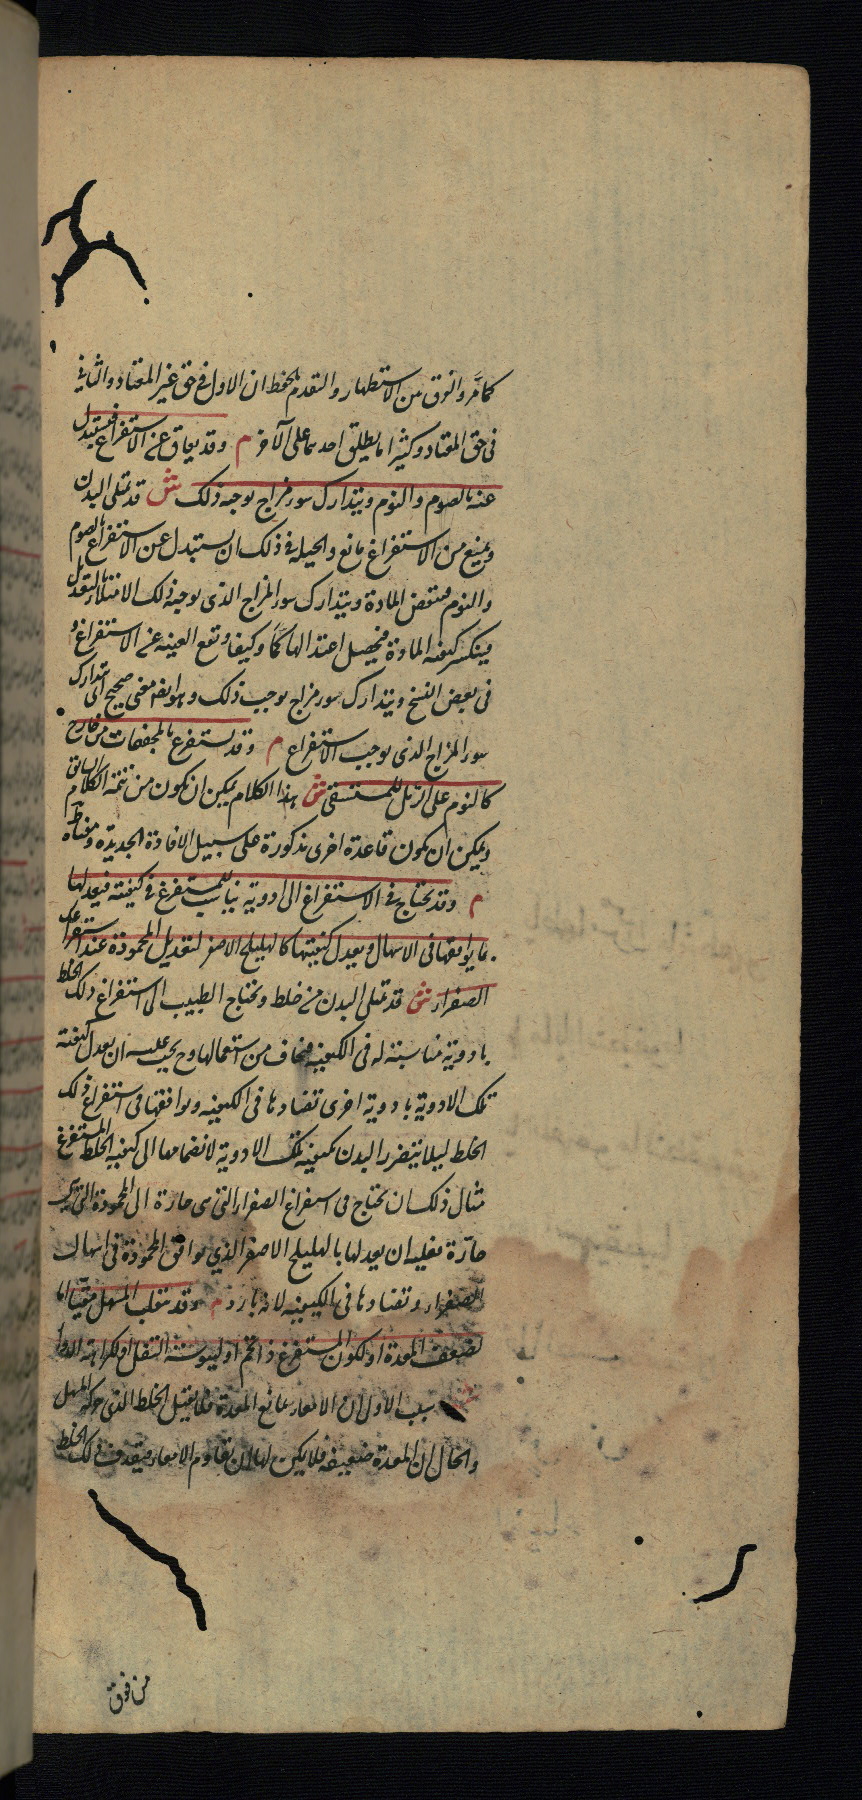 كما مر والفرق من الاستظهار والتقدم بالحفظ ان الاول فى حق غير المعتاد والثانى
فى حق المعتاد وكثيرا ما يطلق احدهما على الآخر م وقد يعاق عن الاستفراغ فيستبدل
عنه بالصوم والنوم ويتدارك سوء مزاج يوجبه ذلك ش قد تمتلى البدن
ويمنع من الاستفراغ مانع والحيلة فى ذلك ان يستبدل عن الاستفراغ بالصوم
والنوم فتنقص المادة ويتدارك سوء المزاج الذى يوجبه ذلك الامتلاء بالتعديل
فينكسر كيفية المادة فيحصل اعتدالها كما وكيفا وتقع الغنية عن الاستفراغ و
فى بعض النسخ ويتدارك سوء مزاج يوجب ذلك وهو ايضا معنى صحيح اى يتدارك
سوء المزاج الذى يوجب الاستفراغ م وقد يستفرغ بالمجففات من خارج
كالنوم على الرمل للمستسقى ش هذا الكلام يمكن ان يكون من تتمة الكلام السابق
ويمكن ان يكون قاعدة اخرى مذكورة على سبيل الافادة الجديدة ومعناه ظ
م وقد يحتاج فى الاستفراغ الى ادوية يناسب للمستفرغ فى كيفيته فيعدلها
بما يوافقها فى الاسهال ويعدل كيفيتها كالهليلج الاصفر لتعديل المحمودة عند استفراغ
الصفراء ش قد تمتلى البدن من خلط ويحتاج الطبيب الى استفراغ ذلك الخلط
بادوية مناسبة له فى الكيفية فيخاف من استعمالها وح يجب عليه ان يعدل كيفية
تلك الادوية بادوية اخرى تضادها فى الكيفية وتوافقها فى استفراغ ذلك
الخلط ليلا يتضرر البدن بكيفية تلك الادوية لانضمامها الى كيفية الخلط المستفرغ
مثال ذلك ان يحتاج فى استفراغ الصفراء التى هى حارة الى المحمودة التى هى
حارة فعليه ان يعدلها بالهليلج الاصفر الذي يوافق المحمودة فى اسهال
الصفراء وتضادها فى الكيفية لانه بارد م وقد ينقلب المسهل مقيئا اما
لضعف المعدة او لكون المستفرغ ذا تخم او ليبوسة الثفل او لكراهة الدواء
ش سبب الاول ان الامعاء تمانع المعدة فلا يقبل الخلط الذى حركه المسهل
والحال ان المعدة ضعيفة فلا يمكن لها ان تقاوم الامعاء فيقذف ذلك الخلط
من فوق